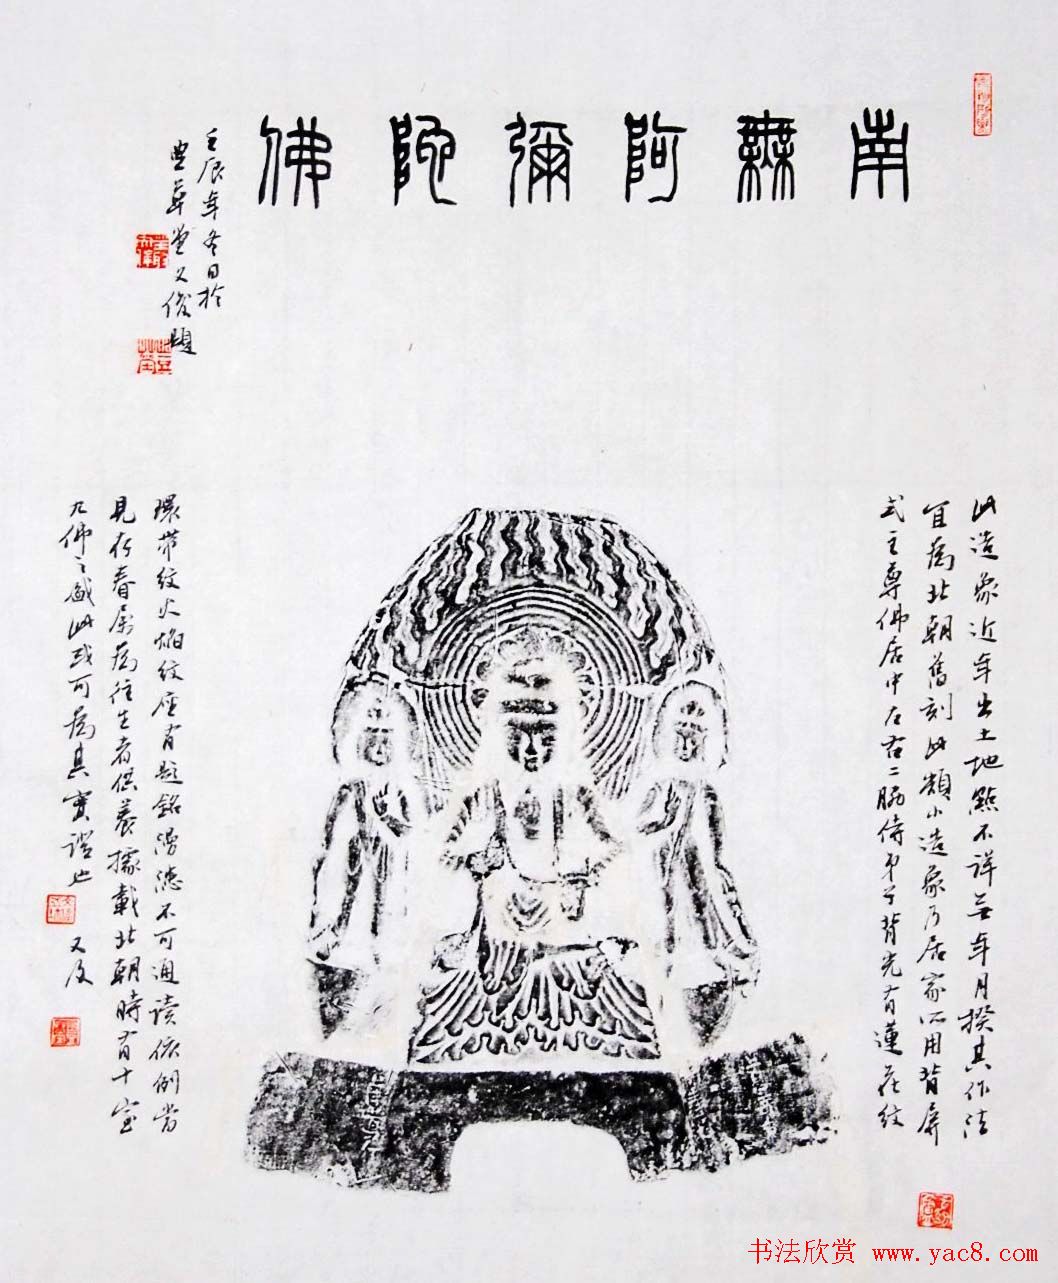 南無阿彌陀佛
壬辰年冬日於
興華堂文俊題
此造象近年出土地點不詳無年月揆其作法
宜為北朝舊刻此類小造象乃居家所用背屏
式主尊佛居中左右二脇侍弟子背光有蓮花紋
環帶紋火焰紋座有題銘漫漶不可通讀依例當
見存眷屬為往生者供養據載北朝時有十室
九佛之盛此或可為其實證也
又及
书法欣赏 www.yac8.com